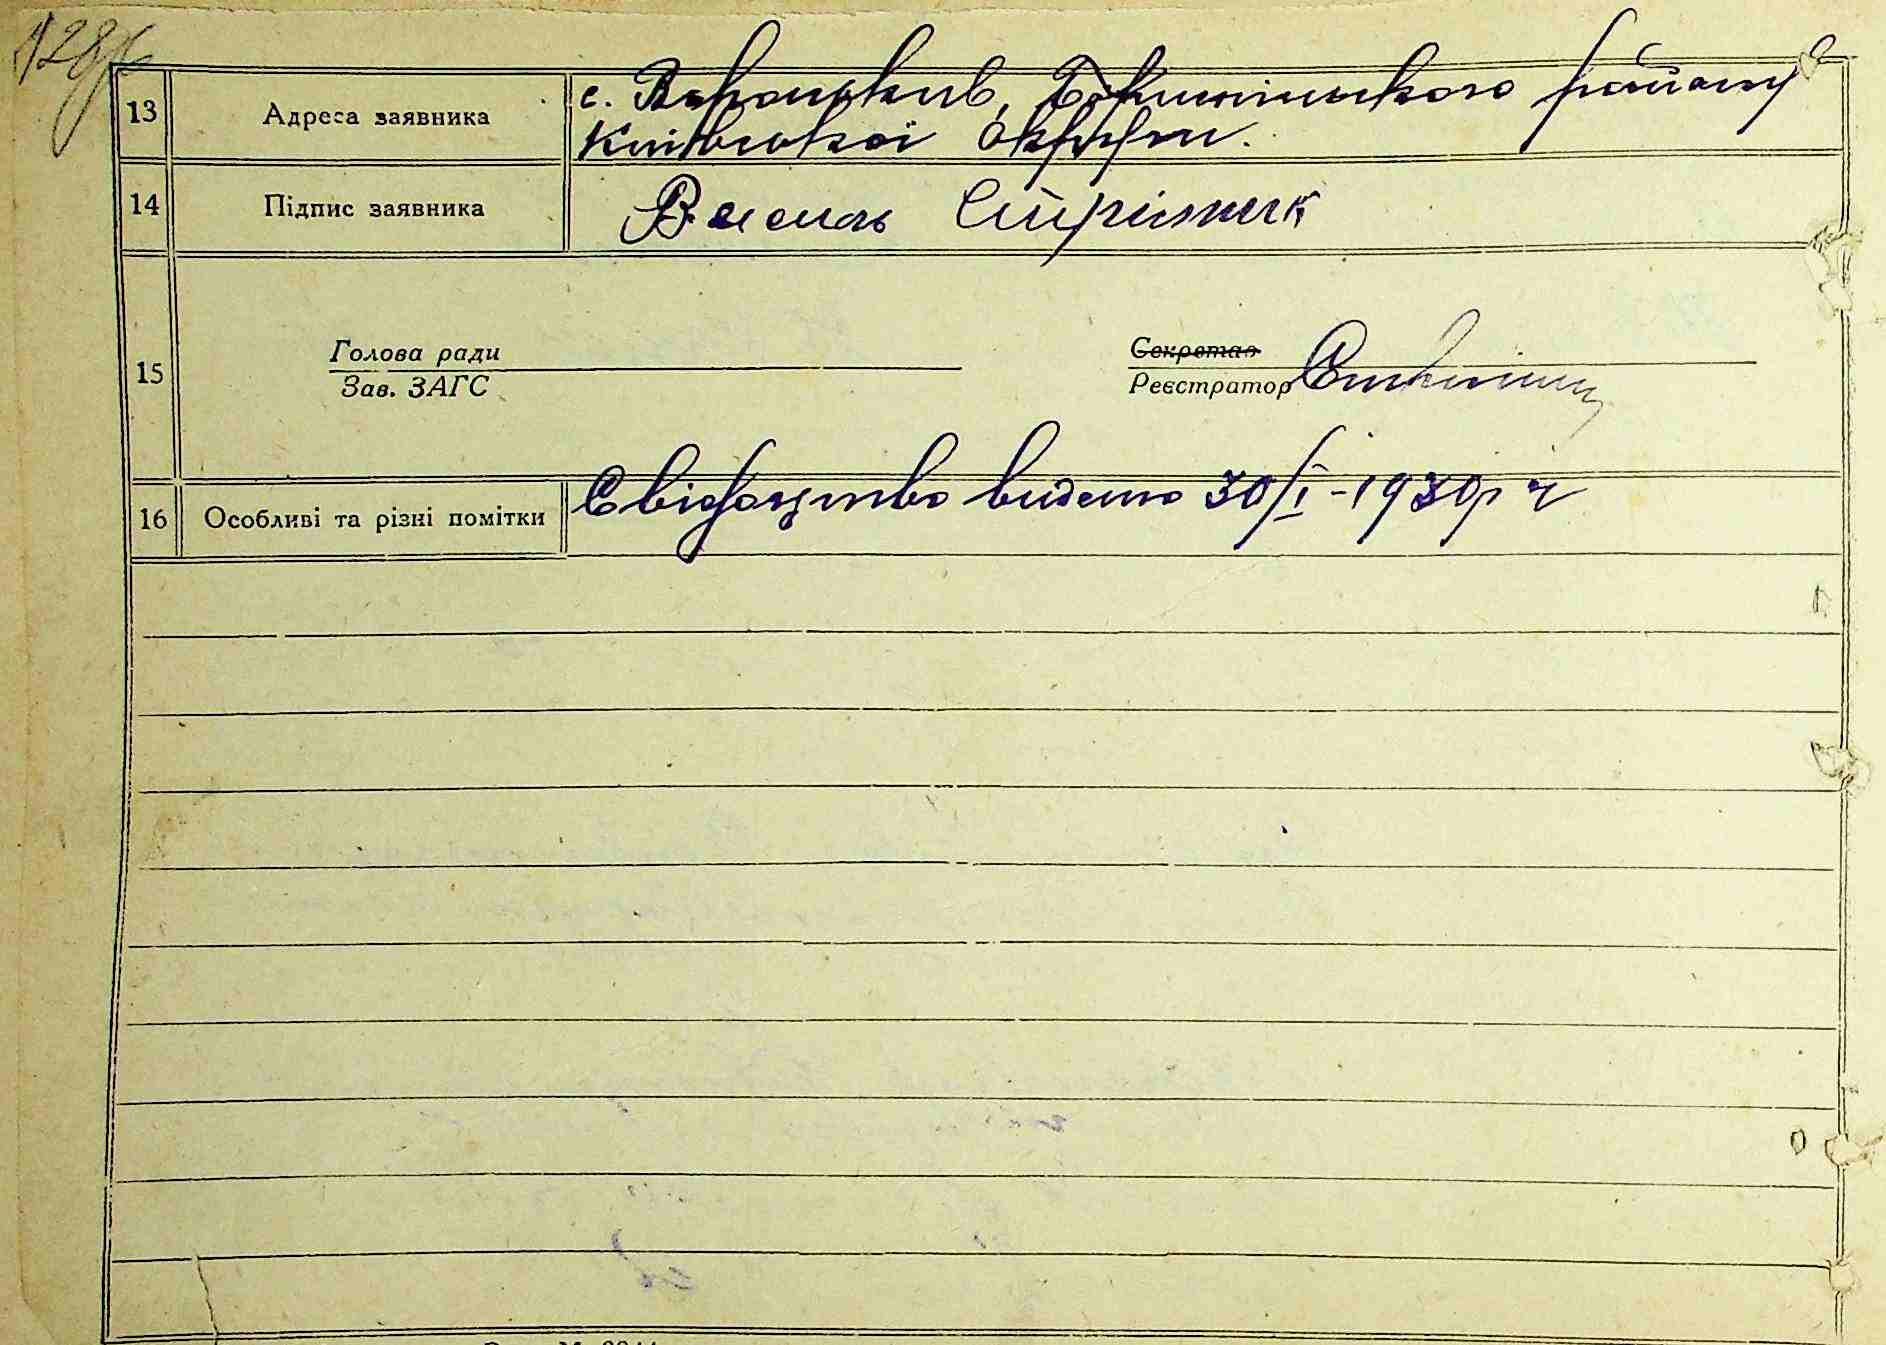 128
13 Адреса заявника с. Вороньків, Бориспільського району
Київської округи.
14 Підпис заявника Василь Стрілник
15 Голова ради Секретар
Зав. ЗАГС Реєстратор
16 Особливі та різні помітки Свідоцтво видано 30/I-1930р